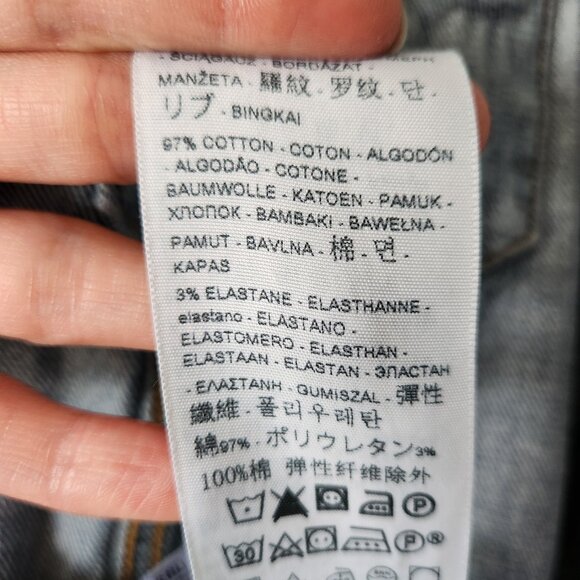 ŚCIĄGACZ - BORDĂZAT -
MANŽETA - 羅紋 - 罗纹 - 단 -
リブ - BINGKAI
97% COTTON - COTON - ALGODÓN
- ALGODÃO - COTONE -
BAUMWOLLE - KATOEN - PAMUK -
ХЛОПОК - BAMBAKI - BAWEŁNA -
PAMUT - BAVLNA - 棉 - 면 -
KAPAS
3% ELASTANE - ELASTHANNE -
elastano - ELASTANO -
ELASTOMERO - ELASTHAN -
ELASTAAN - ELASTAN - ЭЛАСТАН
- ΕΛΑΣΤΑΝΗ - GUMISZAL - 彈性
纖維 - 폴리우레탄
綿97% - ポリウレタン3%
100%棉 弹性纤维除外
P
30 P